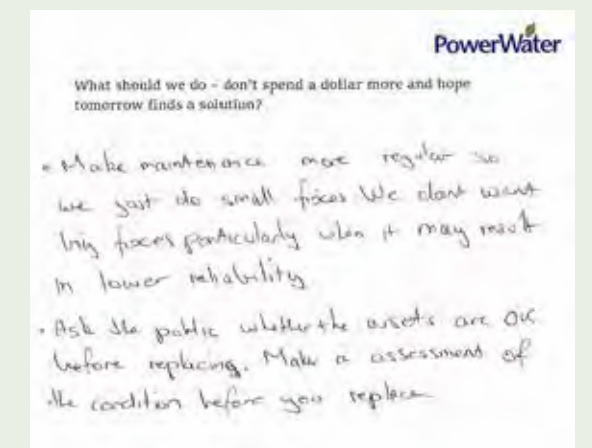 PowerWater
What should we do – don't spend a dollar more and hope
tomorrow finds a solution?
• Make maintenance more regular so
we just do small fixes We dont want
big fixes particularly when it may result
in lower reliability
• Ask the public whether the assets are OK
before replacing. Make a assessment of
the condition before you replace